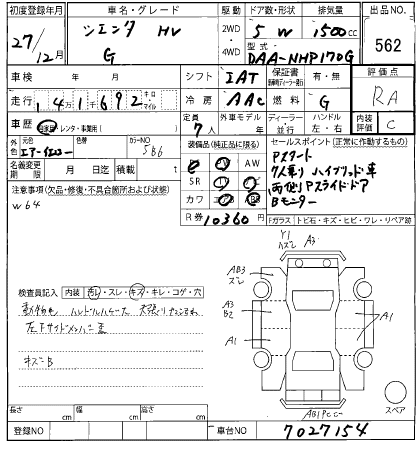 初度登録年月
27
12月
車名・グレード
シエンタ HV
G
駆動
2WD
4WD
ドア数・形状
5 W
排気量
1500cc
型式
DAA-NHP170G
出品NO.
562
車検 年 月
シフト IAT
保証書
有・無
評価点
RA
走行 141692
キロ
マイル
冷房 AAC
燃料 G
車歴 自家用・レンタ・事業用( )
定員
7人
外車モデル
年
ディーラー・並行
ハンドル
左・右
内装評価
C
外色
元色
色替
カラーNO
5B6
名義変更期限 月 日迄
積載 t
装備品(純正品に限る)
AW
SR
カワ
R券 10360円
セールスポイント(正常に作動するもの)
Pスタート
7人乗り ハイブリッド車
両側Pスライドドア
Bモニター
Fガラス トビ石・キズ・ヒビ・ワレ・リペア跡
注意事項(欠品・修復・不具合箇所および状態)
W64
検査員記入 内装 汚レ・スレ・キズ・キレ・コゲ・穴
キズB
Y1
ズレ
A3
AB3
ズレ
A3
B2
A1
A1
スペア
長さ cm
幅 cm
高さ cm
登録NO
車台NO 7027154